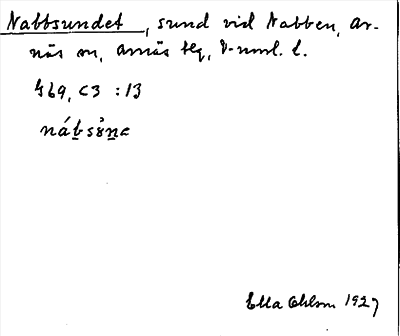 Nabbsundet, sund vid Nabben, Ar-
näs m, Arnäs tg, V-norrl. l.
G69, C3 : 13
Ella Ohlson 1927